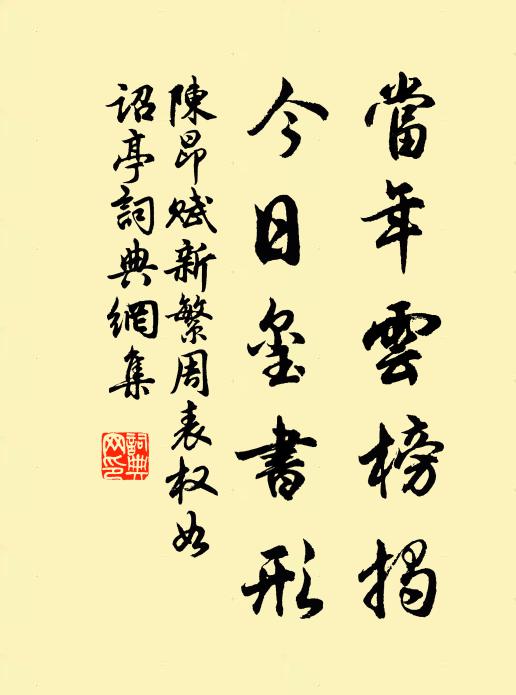 當年雲榜揭
今日璽書形
陳昂賦新繁周表权如
詔亭詞典網集
詞典網印